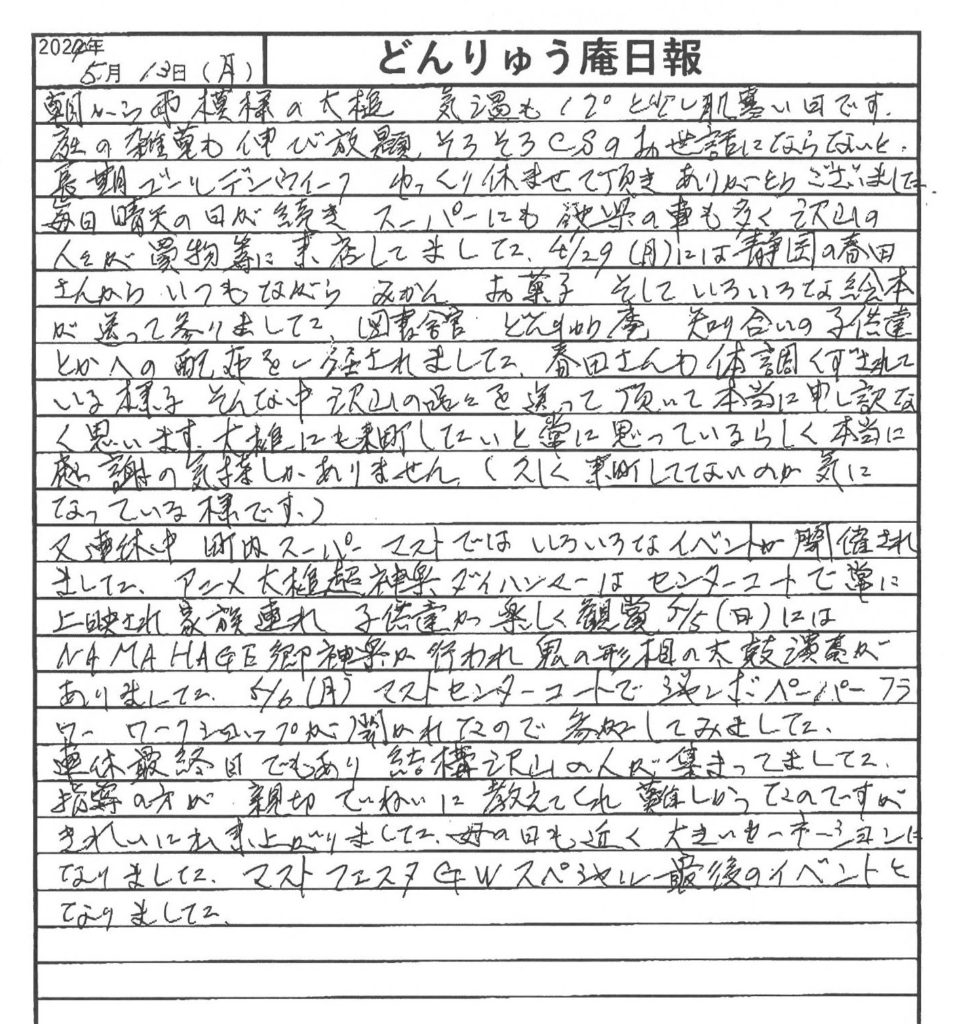 2024年
5月13日(月)
どんりゅう庵日報
朝から雨模様の大槌 気温も12°と少し肌寒い日です。
庭の雑草も伸び放題 そろそろCSのお世話にならないと。
長期ゴールデンウイーク ゆっくり休ませて頂きありがとうございました。
毎日晴天の日が続き スーパーにも他県の車も多く沢山の
人々が買物等に来店してました。4/29(月)には静岡の春田
さんから いつもながら みかん お菓子 そしていろいろな絵本
が送って参りました。図書館 どんりゅう庵 知り合いの子供達
とかへの配布を一任されました。春田さんも体調くずされて
いる様子 そんな中 沢山の品々を送って頂いて本当に申し訳な
く思います。大槌にも来町したいと常に思っているらしく本当に
感謝の気持しかありません。(久しく来町してないのが気に
なっている様です。)
又連休中 町内スーパー マストではいろいろなイベントが開催され
ました。アニメ大槌超神楽ダイハンマーはセンターコートで常に
上映され家族連れ 子供達が楽しく観賞 5/5(日)には
NAMAHAGE郷神楽が行われ鬼の形相の太鼓演奏が
ありました。5/6(月)マストセンターコートでジャンボペーパーフラ
ワー ワークショップが開かれたので参加してみました。
連休最終日でもあり結構沢山の人が集まってました。
指導の方が親切ていねいに教えてくれ難しかったのですが
きれいに出来上がりました。母の日も近く大きいカーネーションに
なりました。マストフェスタGWスペシャル最後のイベントと
なりました。